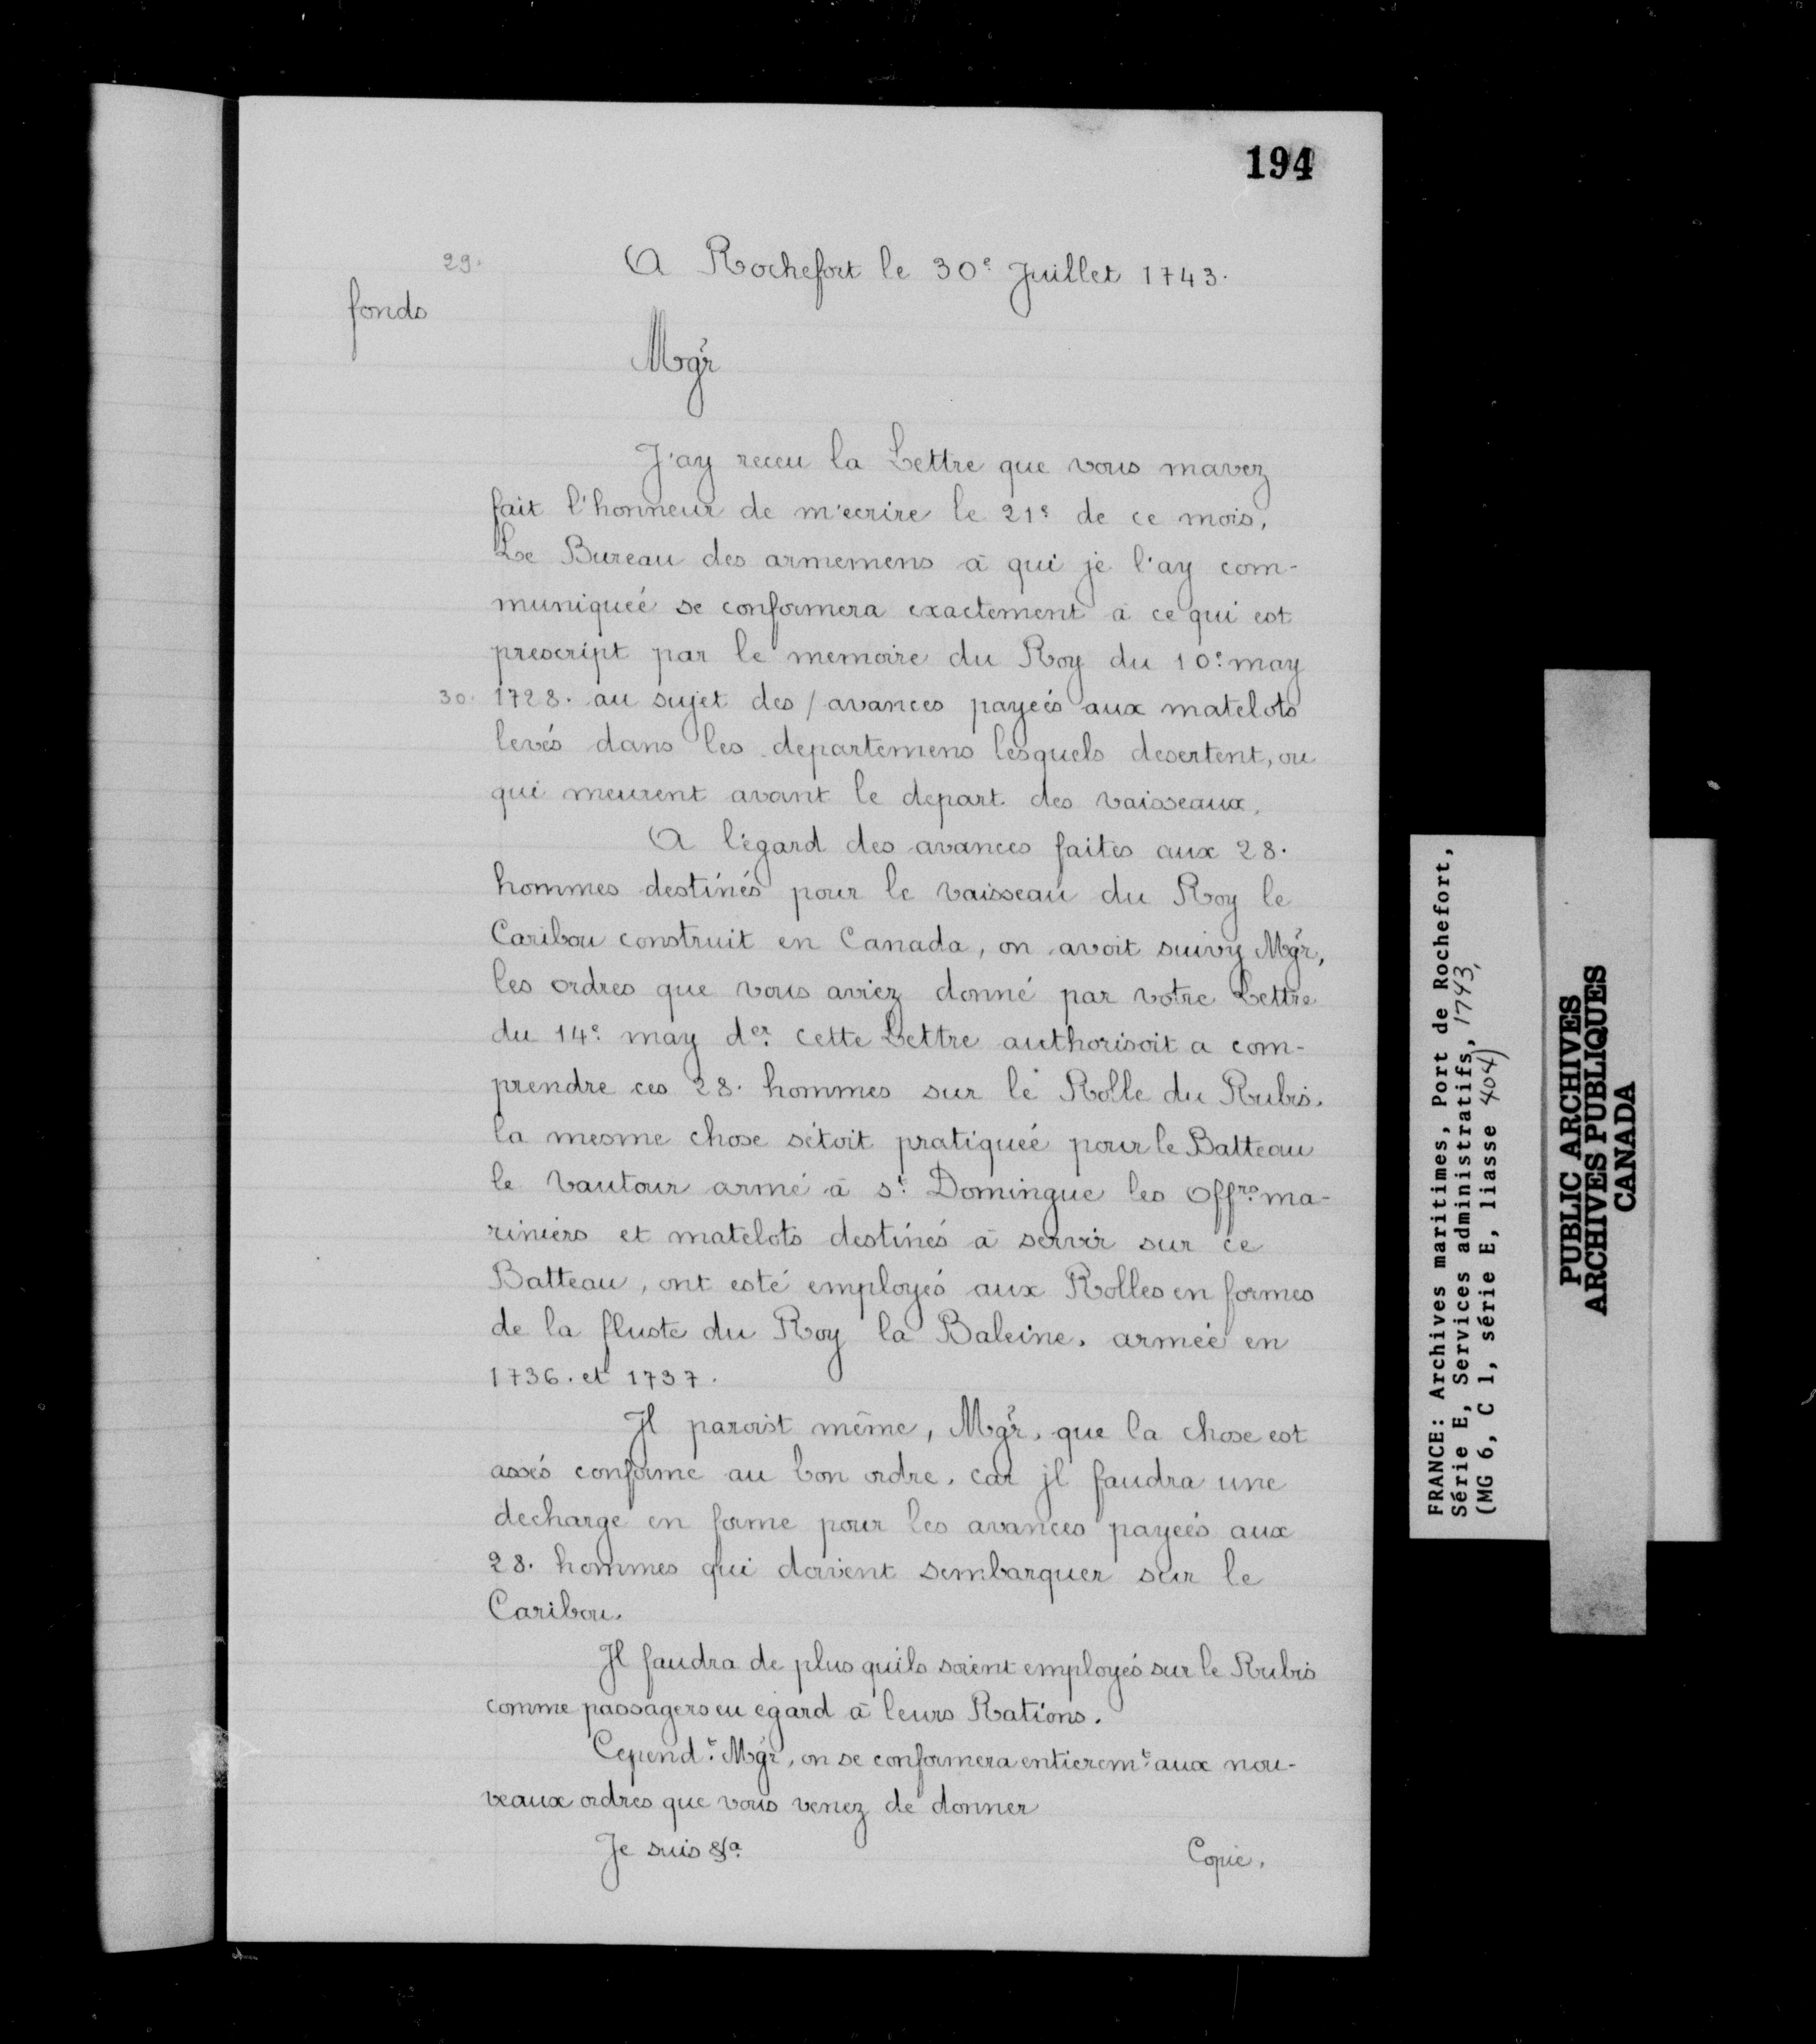 194
29.
A Rochefort le 30e Juillet 1743.
fonds
Mgr
J'ay receu la Lettre que vous mavez
fait l'honneur de m'ecrire le 21e de ce mois,
Le Bureau des armemens à qui je l'ay com-
muniqueé se conformera exactement à ce qui est
prescript par le memoire du Roy du 10e may
30. 1728. au sujet des / avances payeés aux matelots
levés dans les departemens lesquels desertent, ou
qui meurent avant le depart des vaisseaux.
A l'égard des avances faites aux 28.
hommes destinés pour le vaisseau du Roy le
Caribou construit en Canada, on avoit suivy Mgr,
les ordres que vous aviez donné par votre Lettre
du 14e may der. cette Lettre authorisoit a com-
prendre ces 28. hommes sur le Rolle du Rubis.
la mesme chose s'étoit pratiqueé pour le Batteau
le Vautour armé à st. Domingue les Offrs. ma-
riniers et matelots destinés à servir sur ce
Batteau, ont esté employés aux Rolles en formes
de la fluste du Roy la Baleine, armeé en
1736. et 1737.
Il paroist même, Mgr, que la chose est
assés conforme au bon ordre, car jl faudra une
decharge en forme pour les avances payeés aux
28. hommes qui doivent sembarquer sur le
Caribou.
Il faudra de plus quils soient employés sur le Rubis
comme passagers eu egard à leurs Rations.
Cepend.t Mgr, on se conformera entierem.t aux nou-
veaux ordres que vous venez de donner
Je suis &a.
Copie.
FRANCE: Archives maritimes, Port de Rochefort,
Série E, Services administratifs, 1743,
(MG 6, C 1, série E, liasse 404)
PUBLIC ARCHIVES
ARCHIVES PUBLIQUES
CANADA